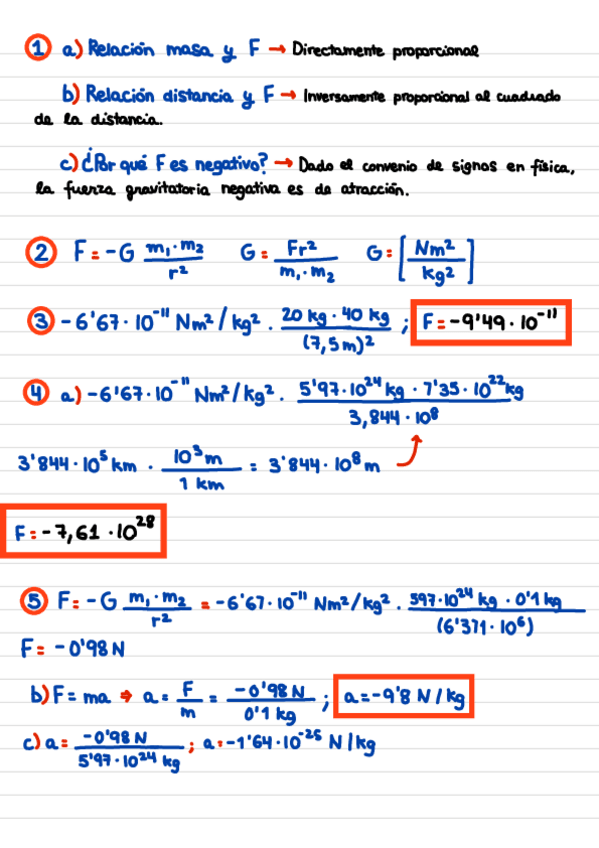 1 a) Relación masa y F → Directamente proporcional
b) Relación distancia y F → Inversamente proporcional al cuadrado
de la distancia.
c) ¿Por qué F es negativo? → Dado el convenio de signos en física,
la fuerza gravitatoria negativa es de atracción.
2 F = -G m₁·m₂ / r² G = Fr² / m₁·m₂ G = [Nm² / kg²]
3 -6'67·10⁻¹¹ Nm²/kg² · 20 kg · 40 kg / (7,5m)² ; F = -9'49·10⁻¹¹
4 a) -6'67·10⁻¹¹ Nm²/kg² · 5'97·10²⁴ kg · 7'35·10²² kg / 3,844·10⁸
3'844·10⁵ km · 10³ m / 1 km = 3'844·10⁸ m
F = -7,61·10²⁸
5 F = -G m₁·m₂ / r² = -6'67·10⁻¹¹ Nm²/kg² · 597·10²⁴ kg · 0'1 kg / (6'371·10⁶)
F = -0'98 N
b) F = ma → a = F / m = -0'98 N / 0'1 kg ; a = -9'8 N/kg
c) a = -0'98 N / 5'97·10²⁴ kg ; a = -1'64·10⁻²⁵ N/kg